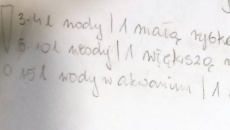 3-4l wody | 1 małą rybkę
8-10l wody | 1 większą
0 15l wody w akwarium | 1